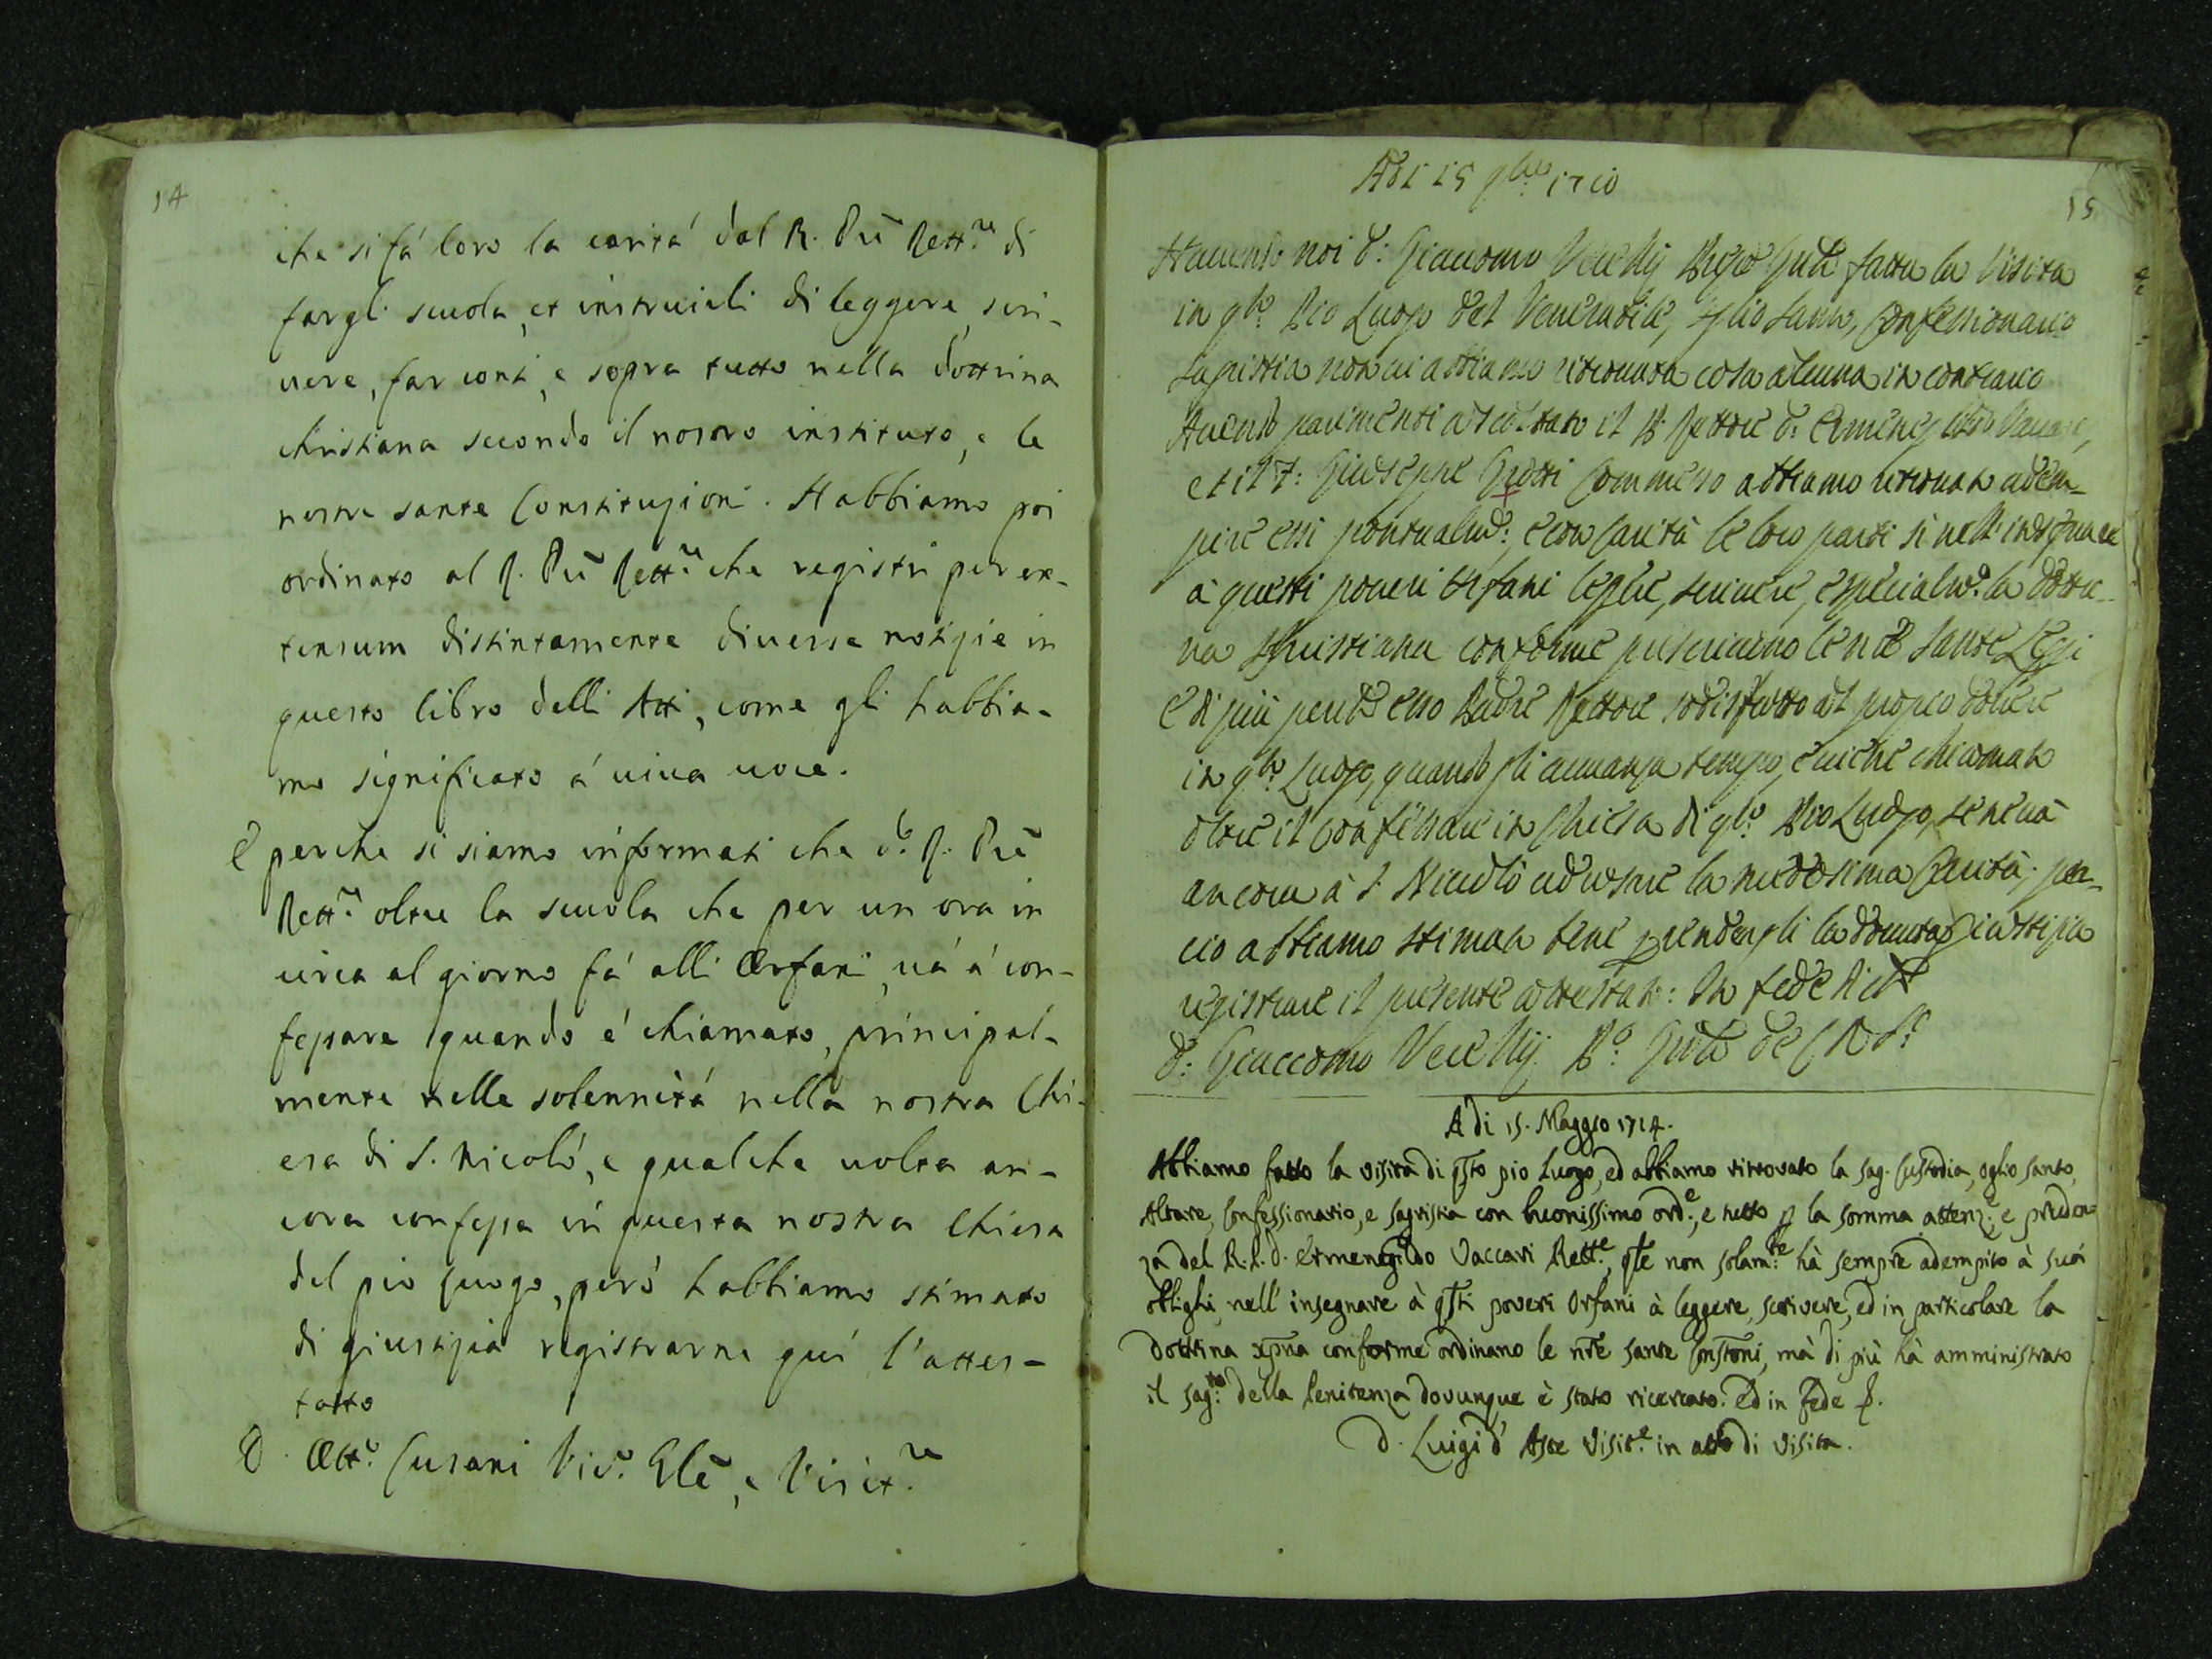 14
che si fá loro la carità dal R. Prē Rett.re di
fargli scuola, et instruirli di leggere, scri-
uere, far conti, e sopra tutto nella dottrina
christiana secondo il nostro instituto, e le
nostre sante Constituzioni. Habbiamo poi
ordinato al R. Prē Rett.re che registri per ex-
tensum distintamente diuerse notizie in
questo libro delli Atti, come gli habbia-
mo significato á uiua uoce.
E perche si siamo informati che d.o R. Prē
Rett.re oltre la scuola che per un ora in
circa al giorno fá alli Orfani, uá á con-
fessare quando é chiamato, principal-
mente nelle solennità nella nostra Chi-
esa di S. Nicoló, e qualche uolta an-
cora confessa in questa nostra Chiesa
del pio luogo, peró habbiamo stimato
di giustizia registrarne quí l'attes-
tatto
D. Ott.o Cusani Vic.o Glē, e Visit.re
15
Adi 15 9bre 1710
Hauendo noi D: Giacomo Vecellij fatta la Visita
in qto Pio Luogo del Venerabile, oglio santo, Confessionario
Sagristia non ui abbiamo ritrouata cosa alcuna in contrario
Auendo parimenti ascoltato il P. Rettore D: Ermenegildo Vaccari,
et il F: Giuseppe Commesso abbiamo ritrouato adem-
pire essi pontualmte: e con Carità le loro parti si nell'insegnare
à questi poueri Orfani legere, scriuere, e specialmte la dottri-
na Christiana conforme prescriuono le nrē Sante Legi
e di più perche esso Padre Rettore sodisfatto al proprio douere
in qto Luogo, quando gli auuanza tempo, e uiene chiamato
oltre il Confessare in Chiesa di qto Pio Luogo, se ne uà
ancora à S. Nicolò ad usare la medesima Carità; per-
cio abbiamo stimato bene p rendergli la douuta giustizia
registrare il presente attestato: In fede
D: Giaccomo Vecellij. C R S.
A di 15. Maggio 1714.
Abbiamo fatto la visita di qsto pio Luogo, ed abbiamo ritrovato la sag. Custodia, oglio santo,
Altare, Confessionario, e sagristia con buonissimo ord.e, e tutto p la somma attenz.e, e pruden-
za del R.P.D. Ermenegildo Vaccari Rett.e, qle non solam.te hà sempre adempito à suoi
obblighi, nell' insegnare à qsti poveri Orfani à leggere, scrivere, ed in particolare la
Dottrina xpna conforme ordinano le nrē sante Constoni, mà di più hà amministrato
il sag.to della Penitenza dovunque è stato ricercato. Ed in fede
D. Luigi d' Aste Visit.e in atto di visita.